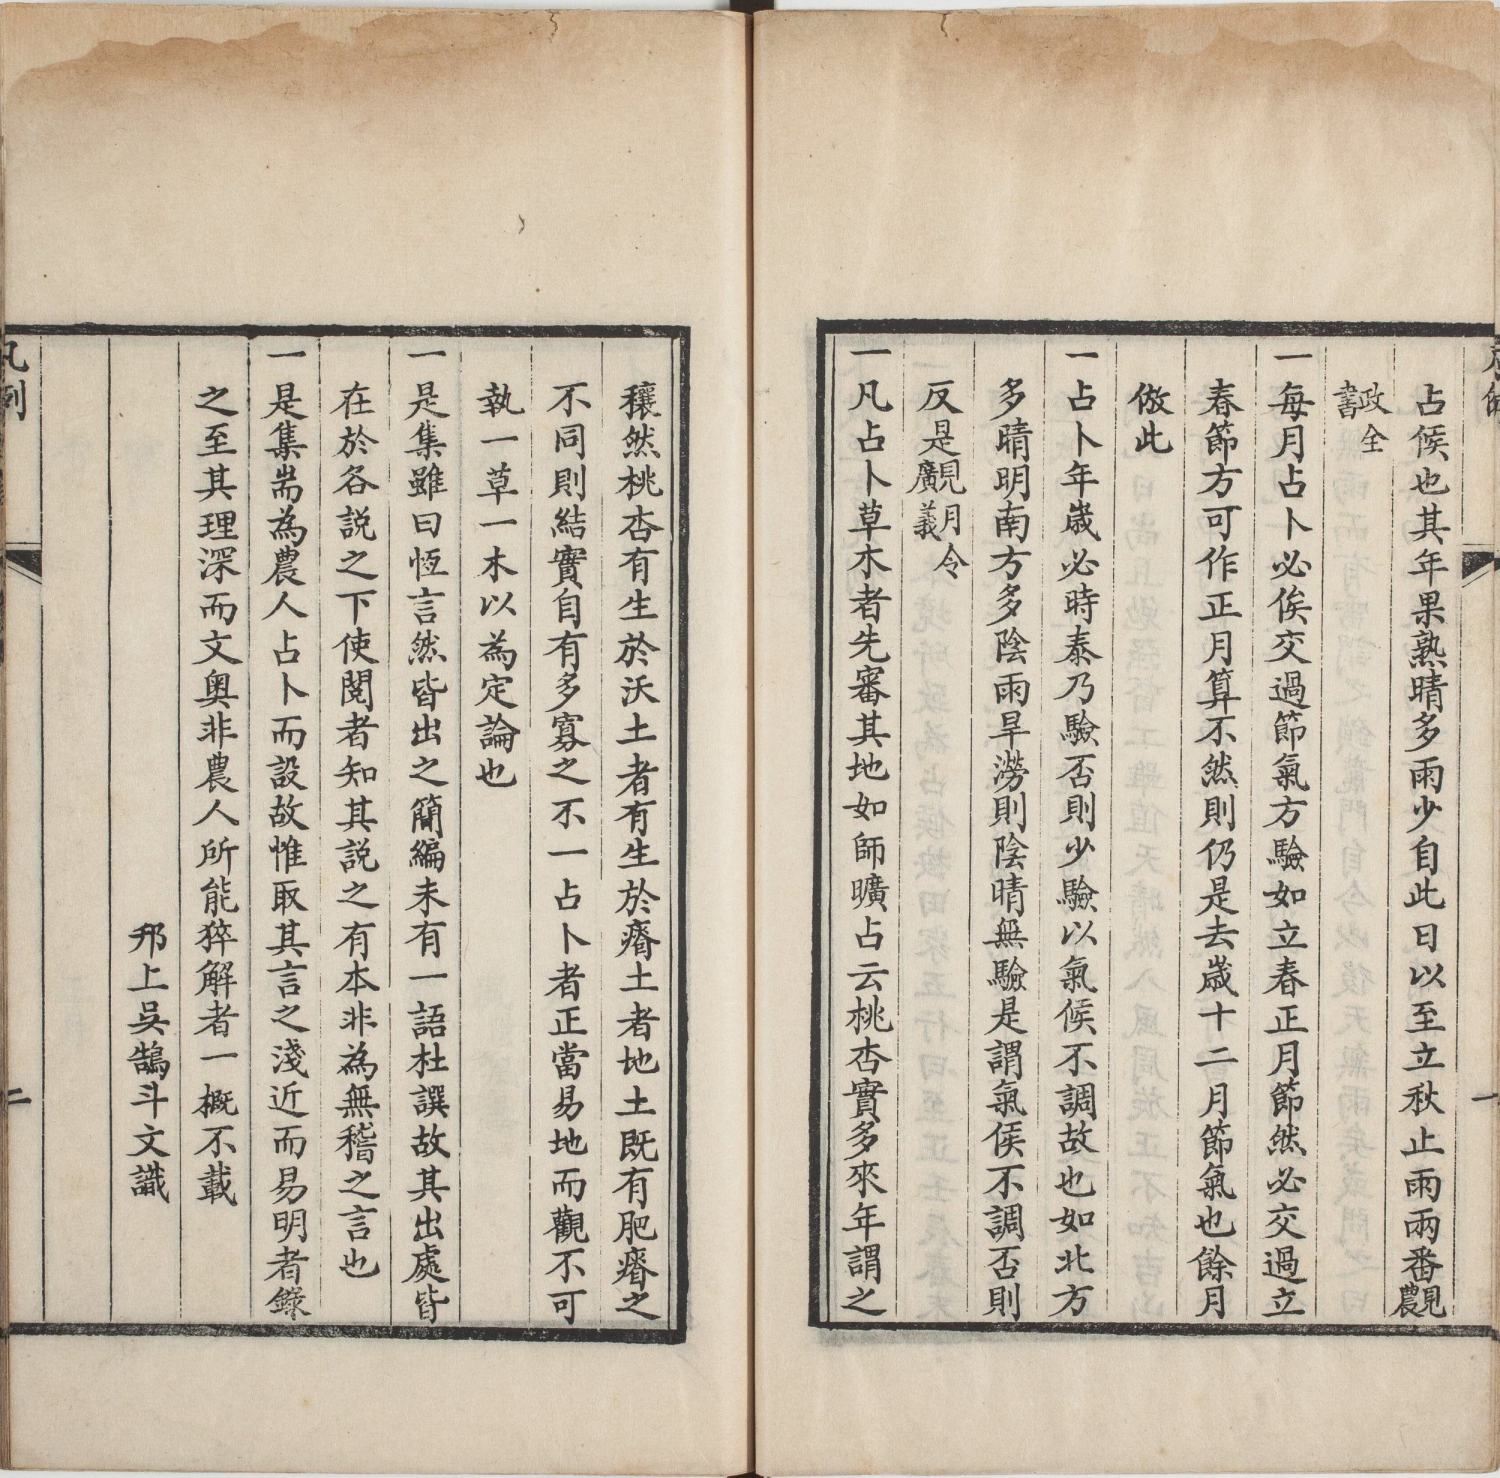 占候也其年果熟晴多雨少自此日以至立秋止雨兩番見農
政全書
一每月占卜必俟交過節氣方驗如立春正月節然必交過立
春節方可作正月算不然則仍是去歲十二月節氣也餘月
倣此
一占卜年歲必時泰乃驗否則少驗以氣候不調故也如北方
多晴明南方多陰雨旱澇則陰晴無驗是謂氣侯不調否則
反是見月令廣義
一凡占卜草木者先審其地如師曠占云桃杏實多來年謂之
穰然桃杏有生於沃土者有生於瘠土者地土既有肥瘠之
不同則結實自有多寡之不一占卜者正當易地而觀不可
執一草一木以為定論也
一是集雖曰恆言然皆出之簡編未有一語杜譔故其出處皆
在於各說之下使閱者知其說之有本非為無稽之言也
一是集耑為農人占卜而設故惟取其言之淺近而易明者錄
之至其理深而文奧非農人所能猝解者一概不載
邗上吳鵠斗文識
凡例
二